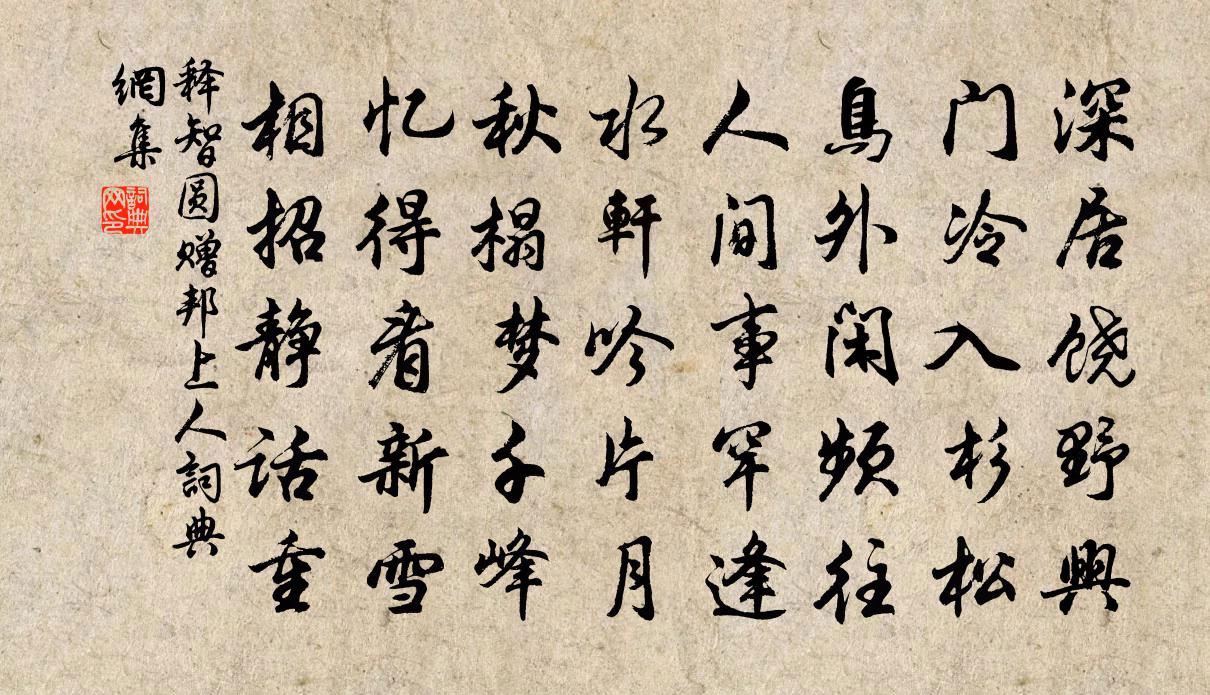 深居饶野興
门冷入杉松
鳥外闲频往
人间事罕逢
水軒吟片月
秋榻梦千峰
忆得看新雪
相招静话重
释智圆赠邦上人詞典
網集
詞典网印